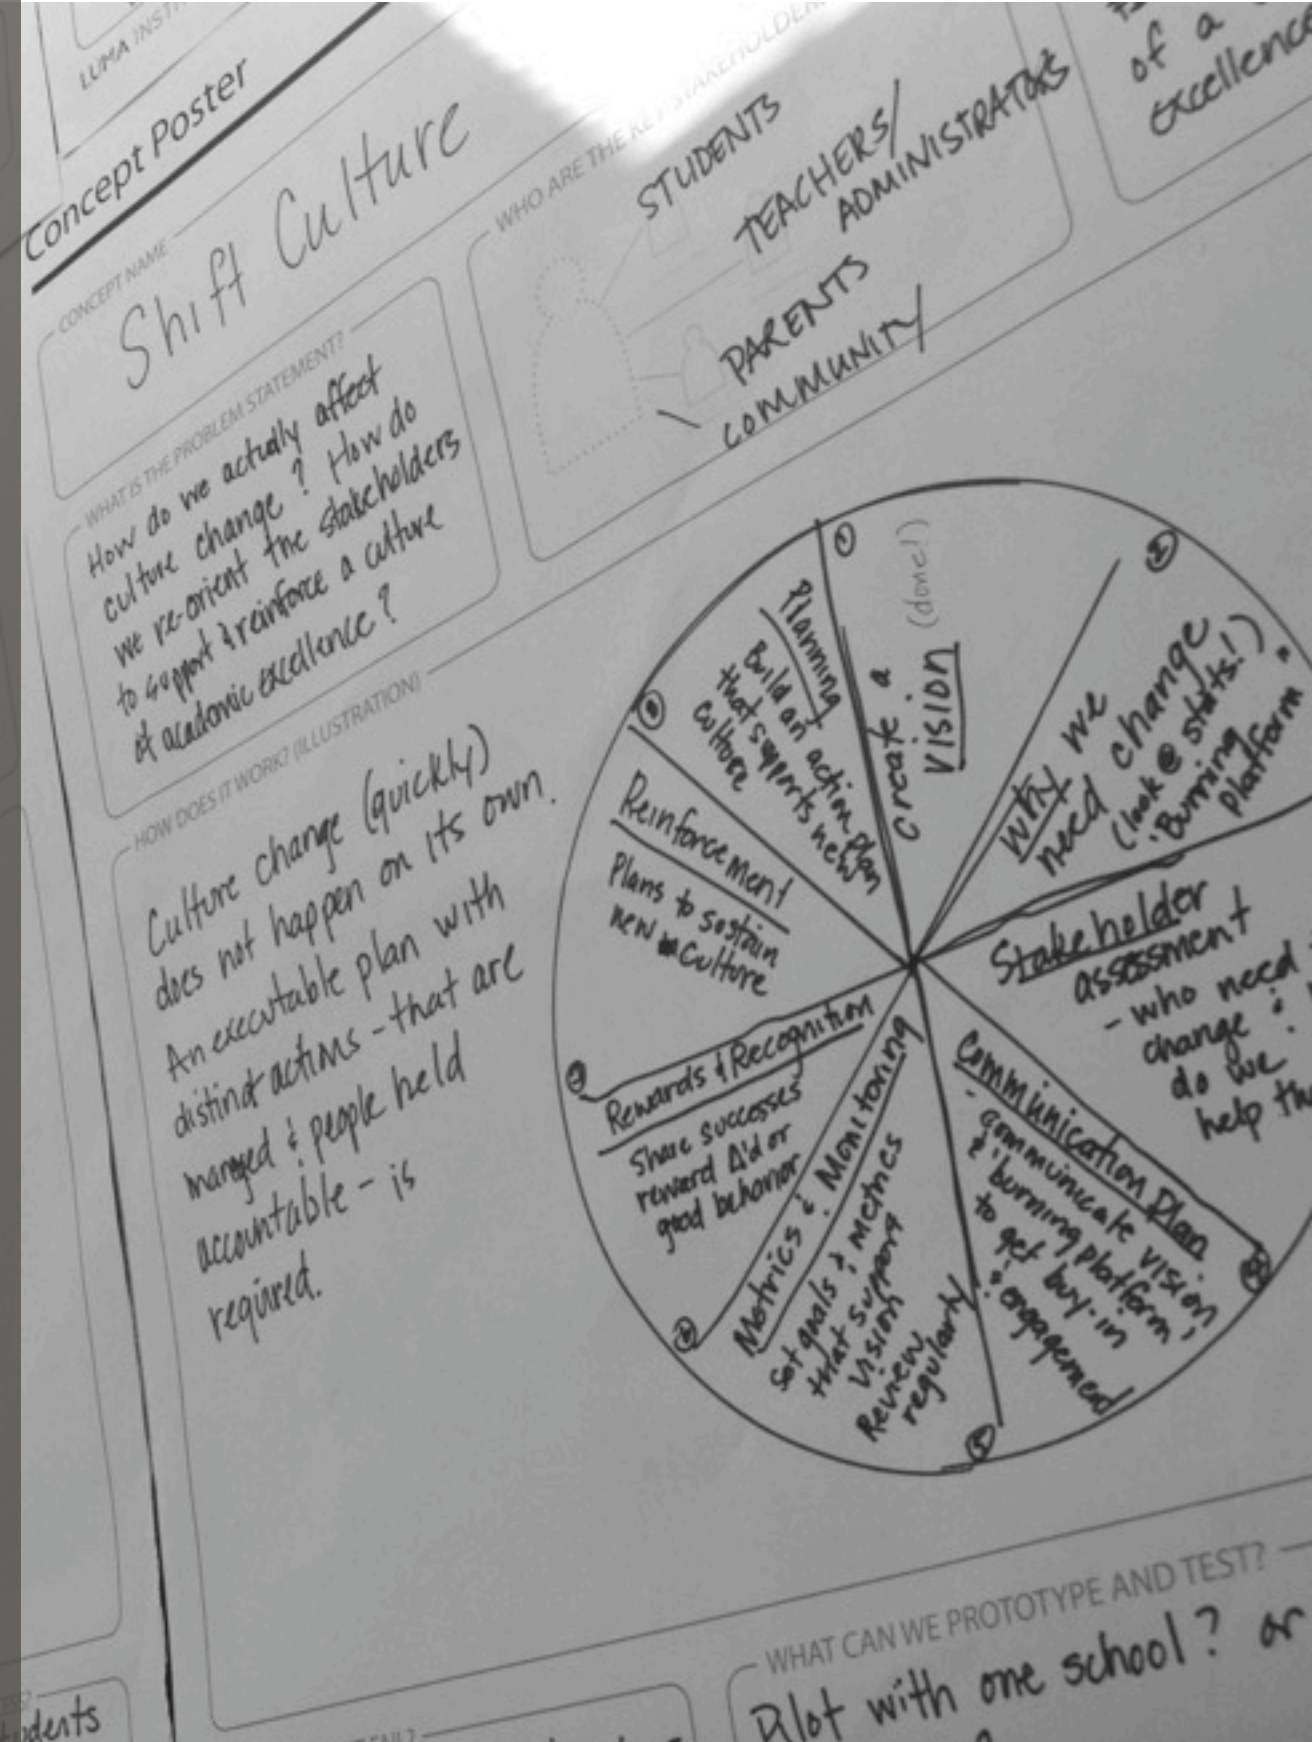 LUMA INST
Concept Poster
CONCEPT NAME
Shift Culture
WHAT IS THE PROBLEM STATEMENT?
How do we actually affect
culture change? How do
we re-orient the stakeholders
to support & reinforce a culture
of academic excellence?
WHO ARE THE KEY STAKEHOLDERS
STUDENTS
TEACHERS/
ADMINISTRATORS
PARENTS
COMMUNITY
of a
excellence
HOW DOES IT WORK? (ILLUSTRATION)
Culture change (quickly)
does not happen on its own.
An executable plan with
distinct actions - that are
managed & people held
accountable - is
required.
1
Create a
VISION (done!)
2
Why we
need change
(look @ stats!)
"Burning
platform"
Stakeholder
assessment
- who need
change &
do we
help
4
Communication Plan
- communicate vision
& "burning platform"
to get buy-in
& engagement
5
Metrics & Monitoring
Set goals & metrics
that support
vision
Review
regularly
6
Rewards & Recognition
Share successes
reward Δ'd or
good behavior
7
Reinforcement
Plans to sustain
new culture
8
Planning
Build an action plan
that supports new
culture
WHAT CAN WE PROTOTYPE AND TEST?
Pilot with one school? or